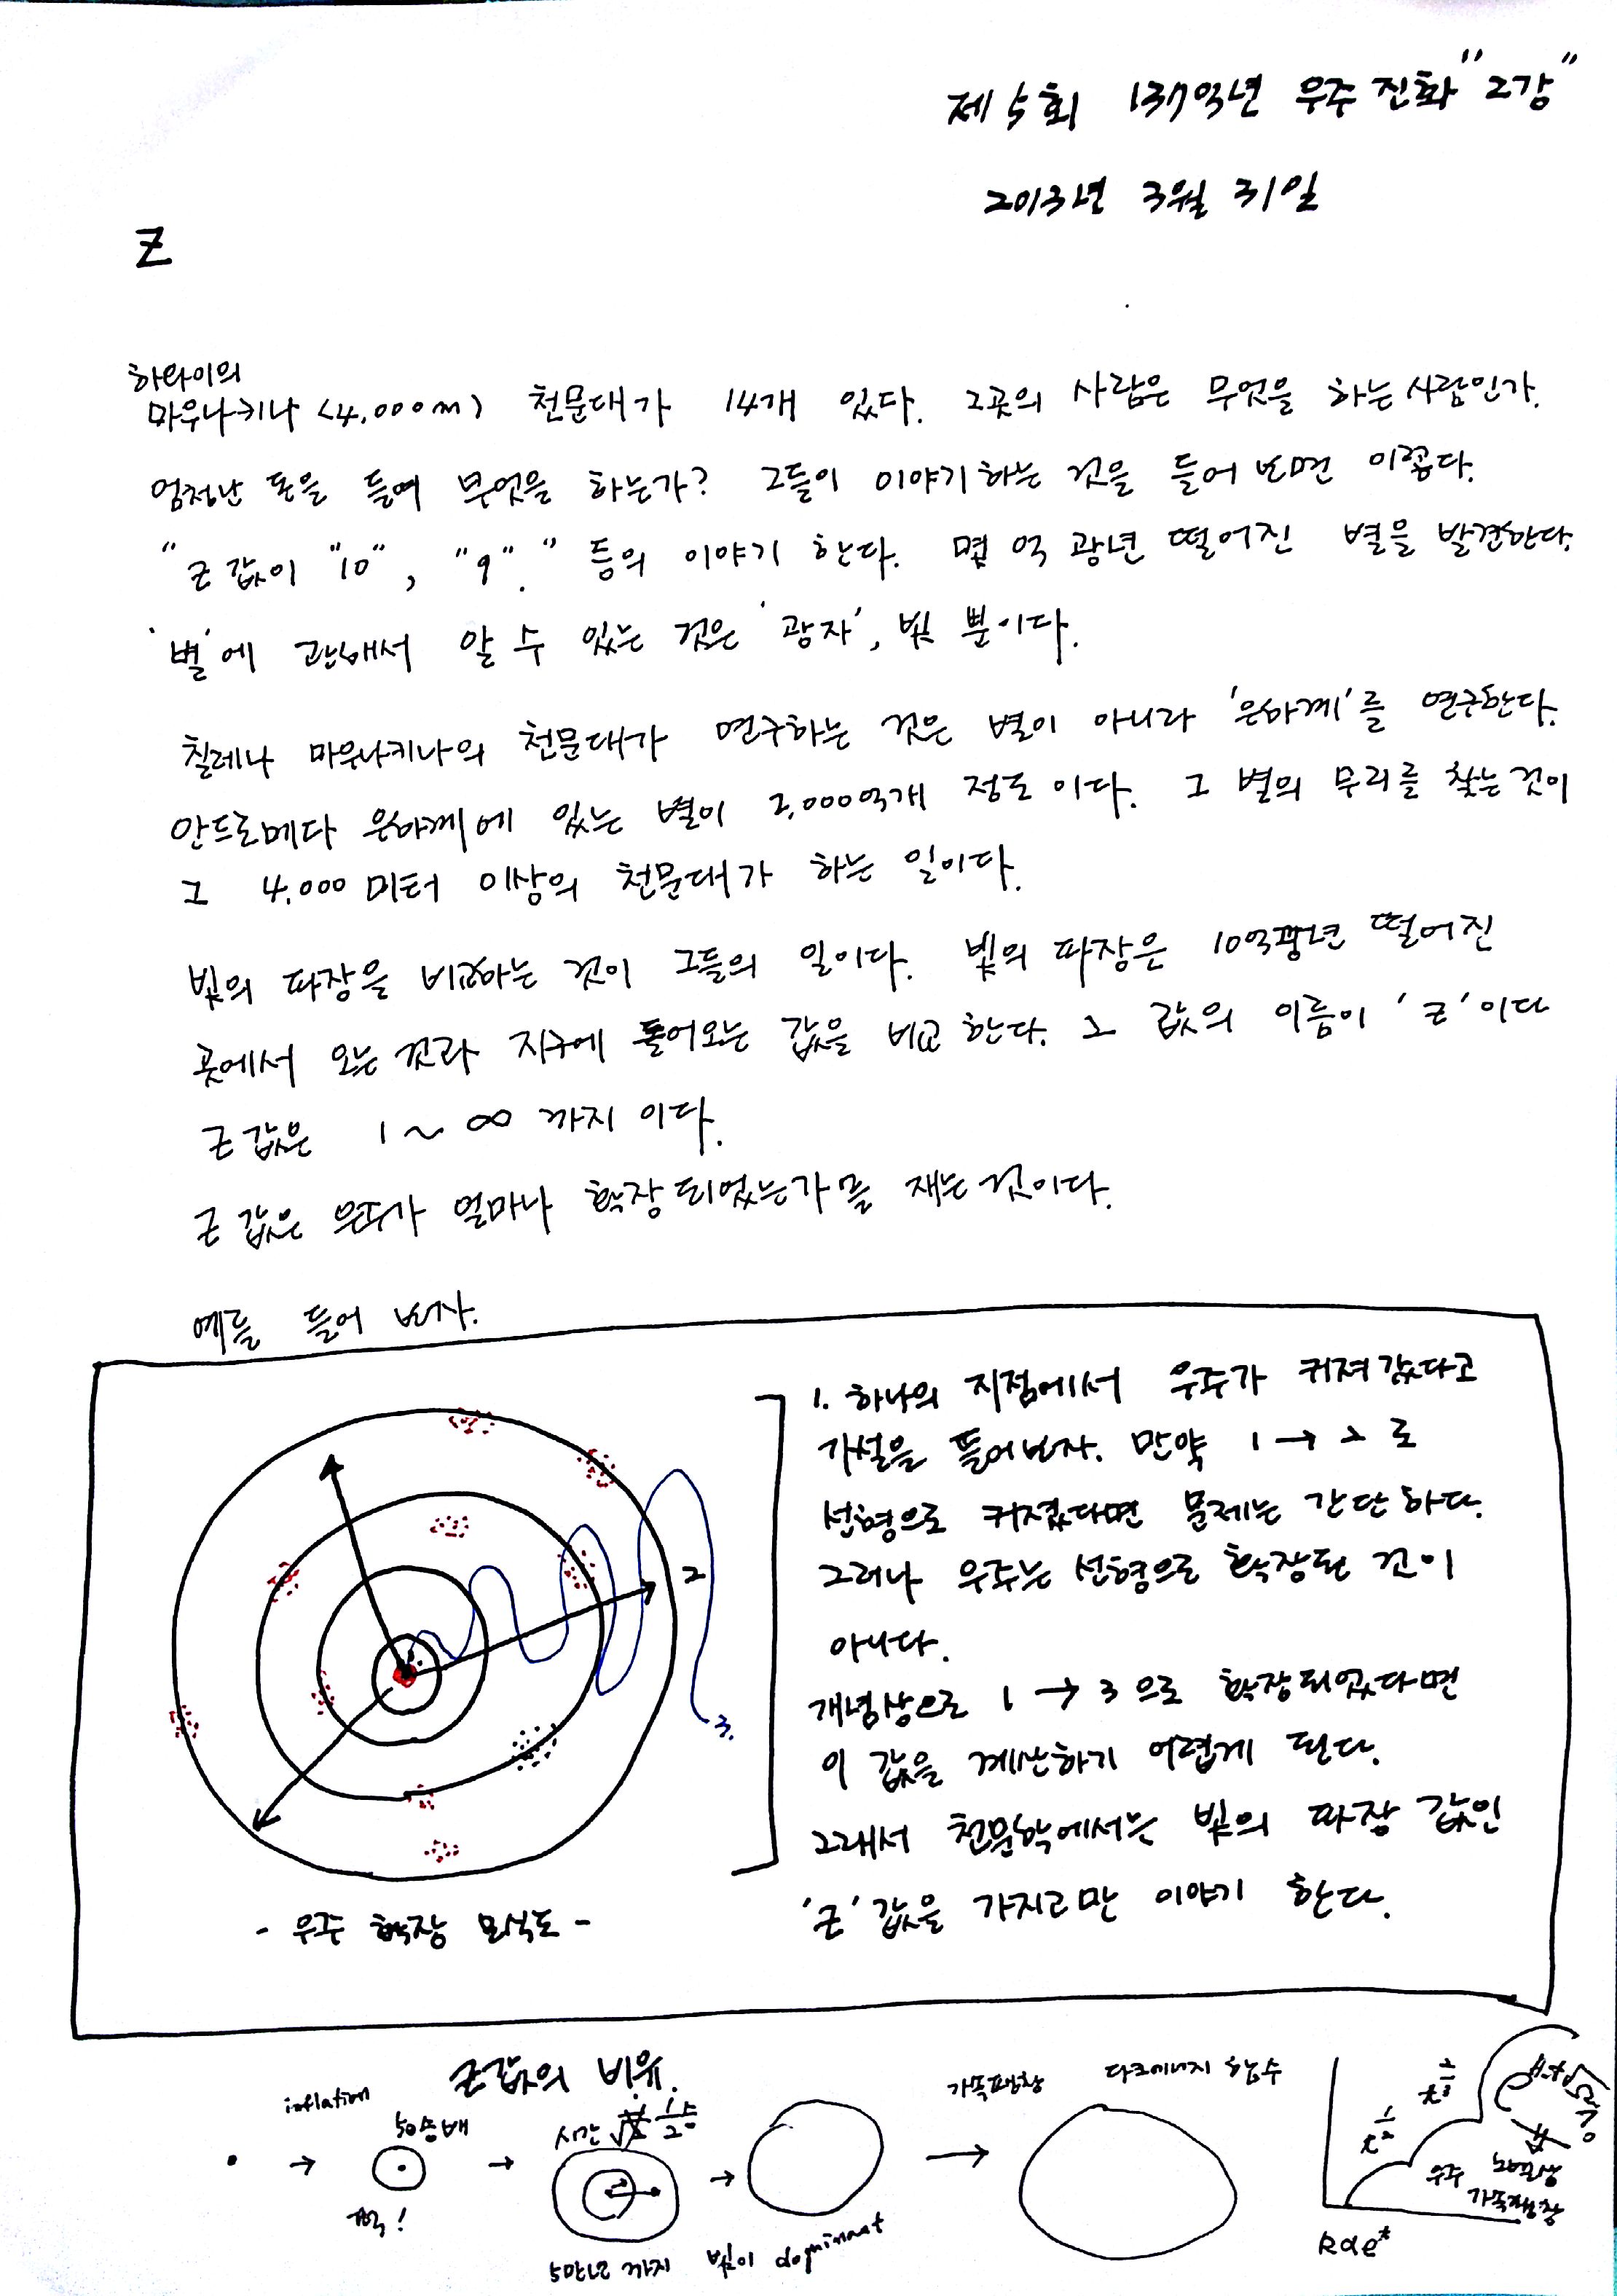 제 5회 137억년 우주 진화 "2강"
2013년 3월 31일
Z
하와이의
마우나키나 (4,000m) 천문대가 14개 있다. 그곳의 사람은 무엇을 하는 사람인가.
엄청난 돈을 들여 무엇을 하는가? 그들이 이야기하는 것을 들어 보면 이렇다.
"Z 값이 "10", "9"." 등의 이야기 한다. 몇 억 광년 떨어진 별을 발견한다.
'별'에 관해서 알 수 있는 것은 '광자', 빛 뿐이다.
칠레나 마우나키나의 천문대가 연구하는 것은 별이 아니라 '은하계'를 연구한다.
안드로메다 은하계에 있는 별이 2,000억개 정도 이다. 그 별의 무리를 찾는 것이
그 4,000 미터 이상의 천문대가 하는 일이다.
빛의 파장을 비교하는 것이 그들의 일이다. 빛의 파장은 10억광년 떨어진
곳에서 오는 것과 지구에 들어오는 값을 비교 한다. 그 값의 이름이 'Z'이다
Z 값은 1 ~ ∞ 까지 이다.
Z 값은 우주가 얼마나 확장 되었는가를 재는 것이다.
예를 들어 보자.
1. 하나의 지점에서 우주가 커져 갔다고
가설을 들어보자. 만약 1 → 2 로
선형으로 커졌다면 문제는 간단하다.
그러나 우주는 선형으로 확장된 것이
아니다.
개념상으로 1 → 3 으로 확장되었다면
이 값을 계산하기 어렵게 된다.
그래서 천문학에서는 빛의 파장 값인
'Z' 값을 가지고만 이야기 한다.
2
3.
- 우주 확장 모식도 -
Z값의 비유.
inflation
50승배
시간
5만년 까지 빛이 dominant
가속팽창
다크에너지 함수
t^{1/2}
t^{2/3}
우주
가속팽창
R α e^t